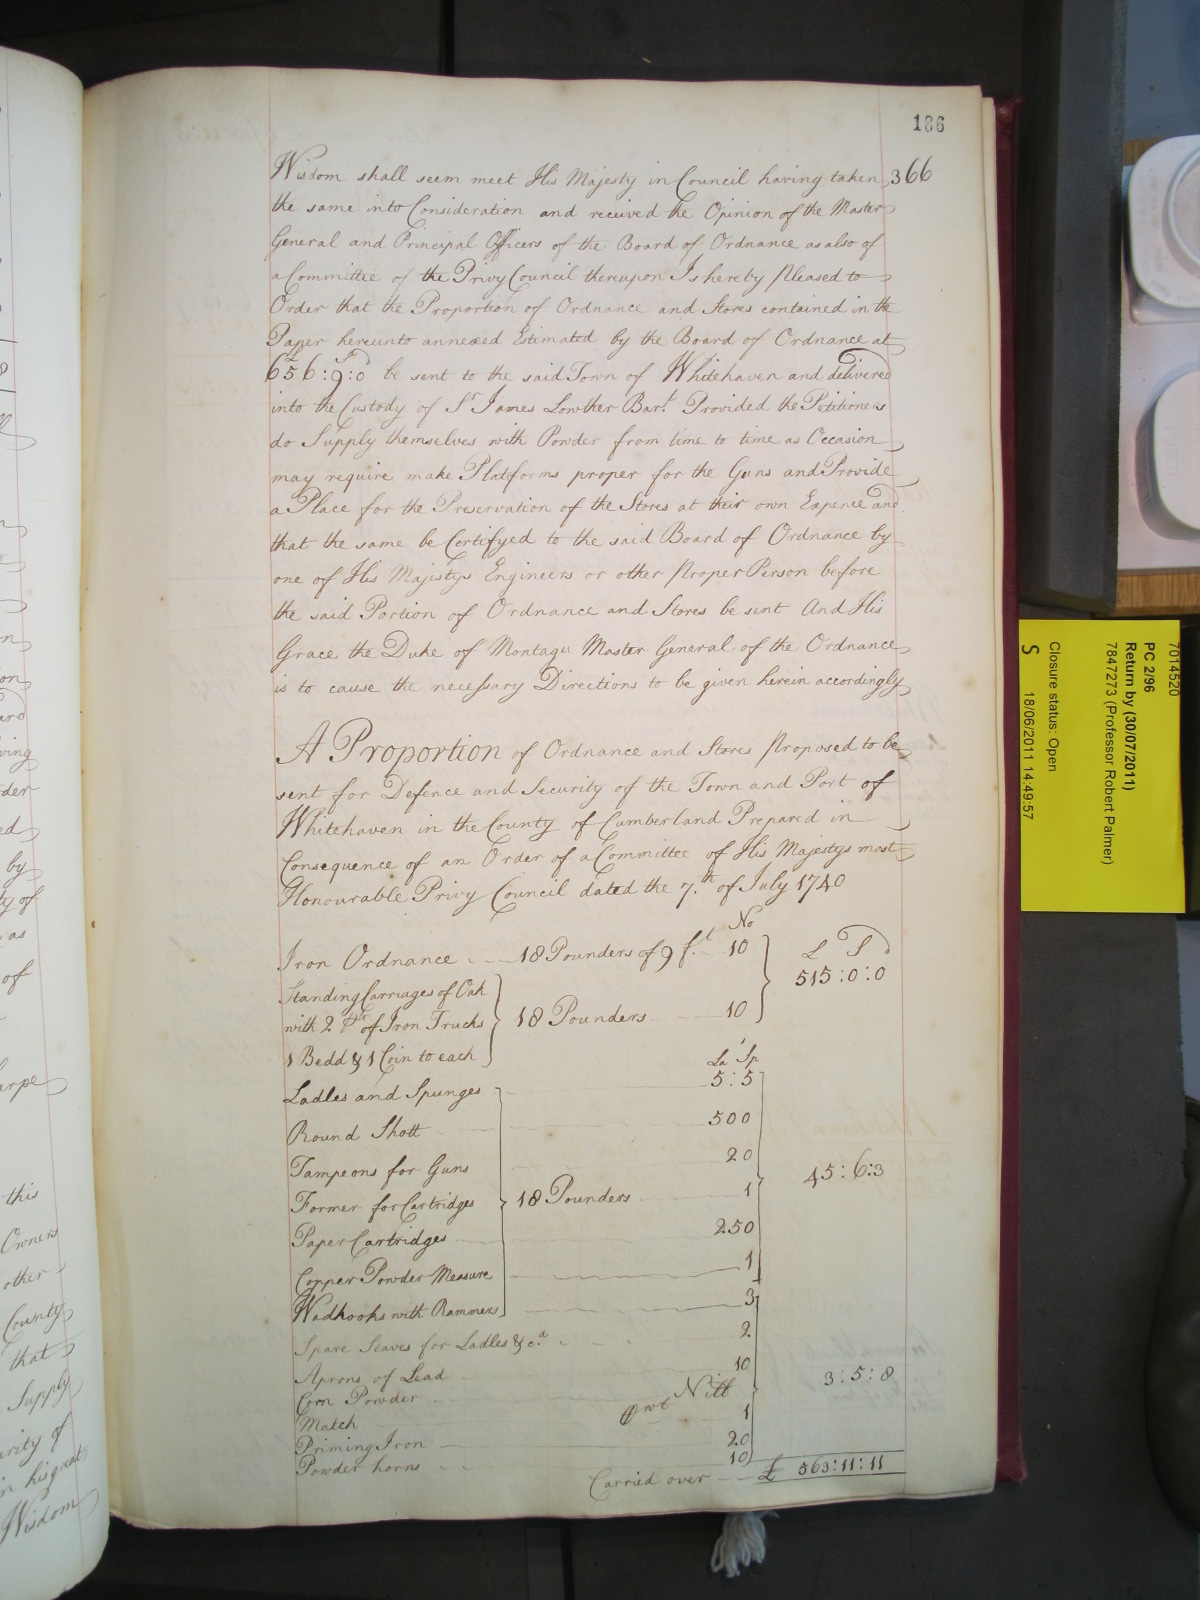 186
366
Wisdom shall seem meet His Majesty in Council having taken
the same into Consideration and received the Opinion of the Master
General and Principal Officers of the Board of Ordnance as also of
a Committee of the Privy Council thereupon Is hereby pleased to
Order that the Proportion of Ordnance and Stores contained in the
Paper hereunto annexed Estimated by the Board of Ordnance at
656:9:0 be sent to the said Town of Whitehaven and delivered
into the Custody of Sr James Lowther Bart. Provided the Petitioners
do Supply themselves with Powder from time to time as Occasion
may require make Platforms proper for the Guns and Provide
a Place for the Preservation of the Stores at their own Expence and
that the same be Certifyed to the said Board of Ordnance by
one of His Majestys Engineers or other proper Person before
the said Portion of Ordnance and Stores be sent And His
Grace the Duke of Montagu Master General of the Ordnance
is to cause the necessary Directions to be given herein accordingly
A Proportion of Ordnance and Stores proposed to be
sent for Defence and Security of the Town and Port of
Whitehaven in the County of Cumberland Prepared in
Consequence of an Order of a Committee of His Majestys most
Honourable Privy Council dated the 7.th of July 1740
No
Iron Ordnance 18 Pounders of 9 f.t 10
£ S D
515:0:0
Standing Carriages of Oak
with 2 pr of Iron Trucks 18 Pounders 10
1 Bedd & 1 Coin to each
La Sp
Ladles and Spunges 5:5
Round Shott 500
Tampeons for Guns 20
45:6:3
Former for Cartridges 18 Pounders 1
Paper Cartridges 250
Copper Powder Measure 1
Wadhooks with Rammers 3
Spare Staves for Ladles &c.a 2
Aprons of Lead 10
3:5:8
Corn Powder Nill
Match Cwt 1
Priming Iron 20
Powder horns 10
Carried over £ 563:11:11
7014520
PC 2/96
Return by (30/07/2011)
7847273 (Professor Robert Palmer)
Closure status: Open
S 18/06/2011 14:49:57
this
Owners
other
County
that
Supply
in his great
Wisdom